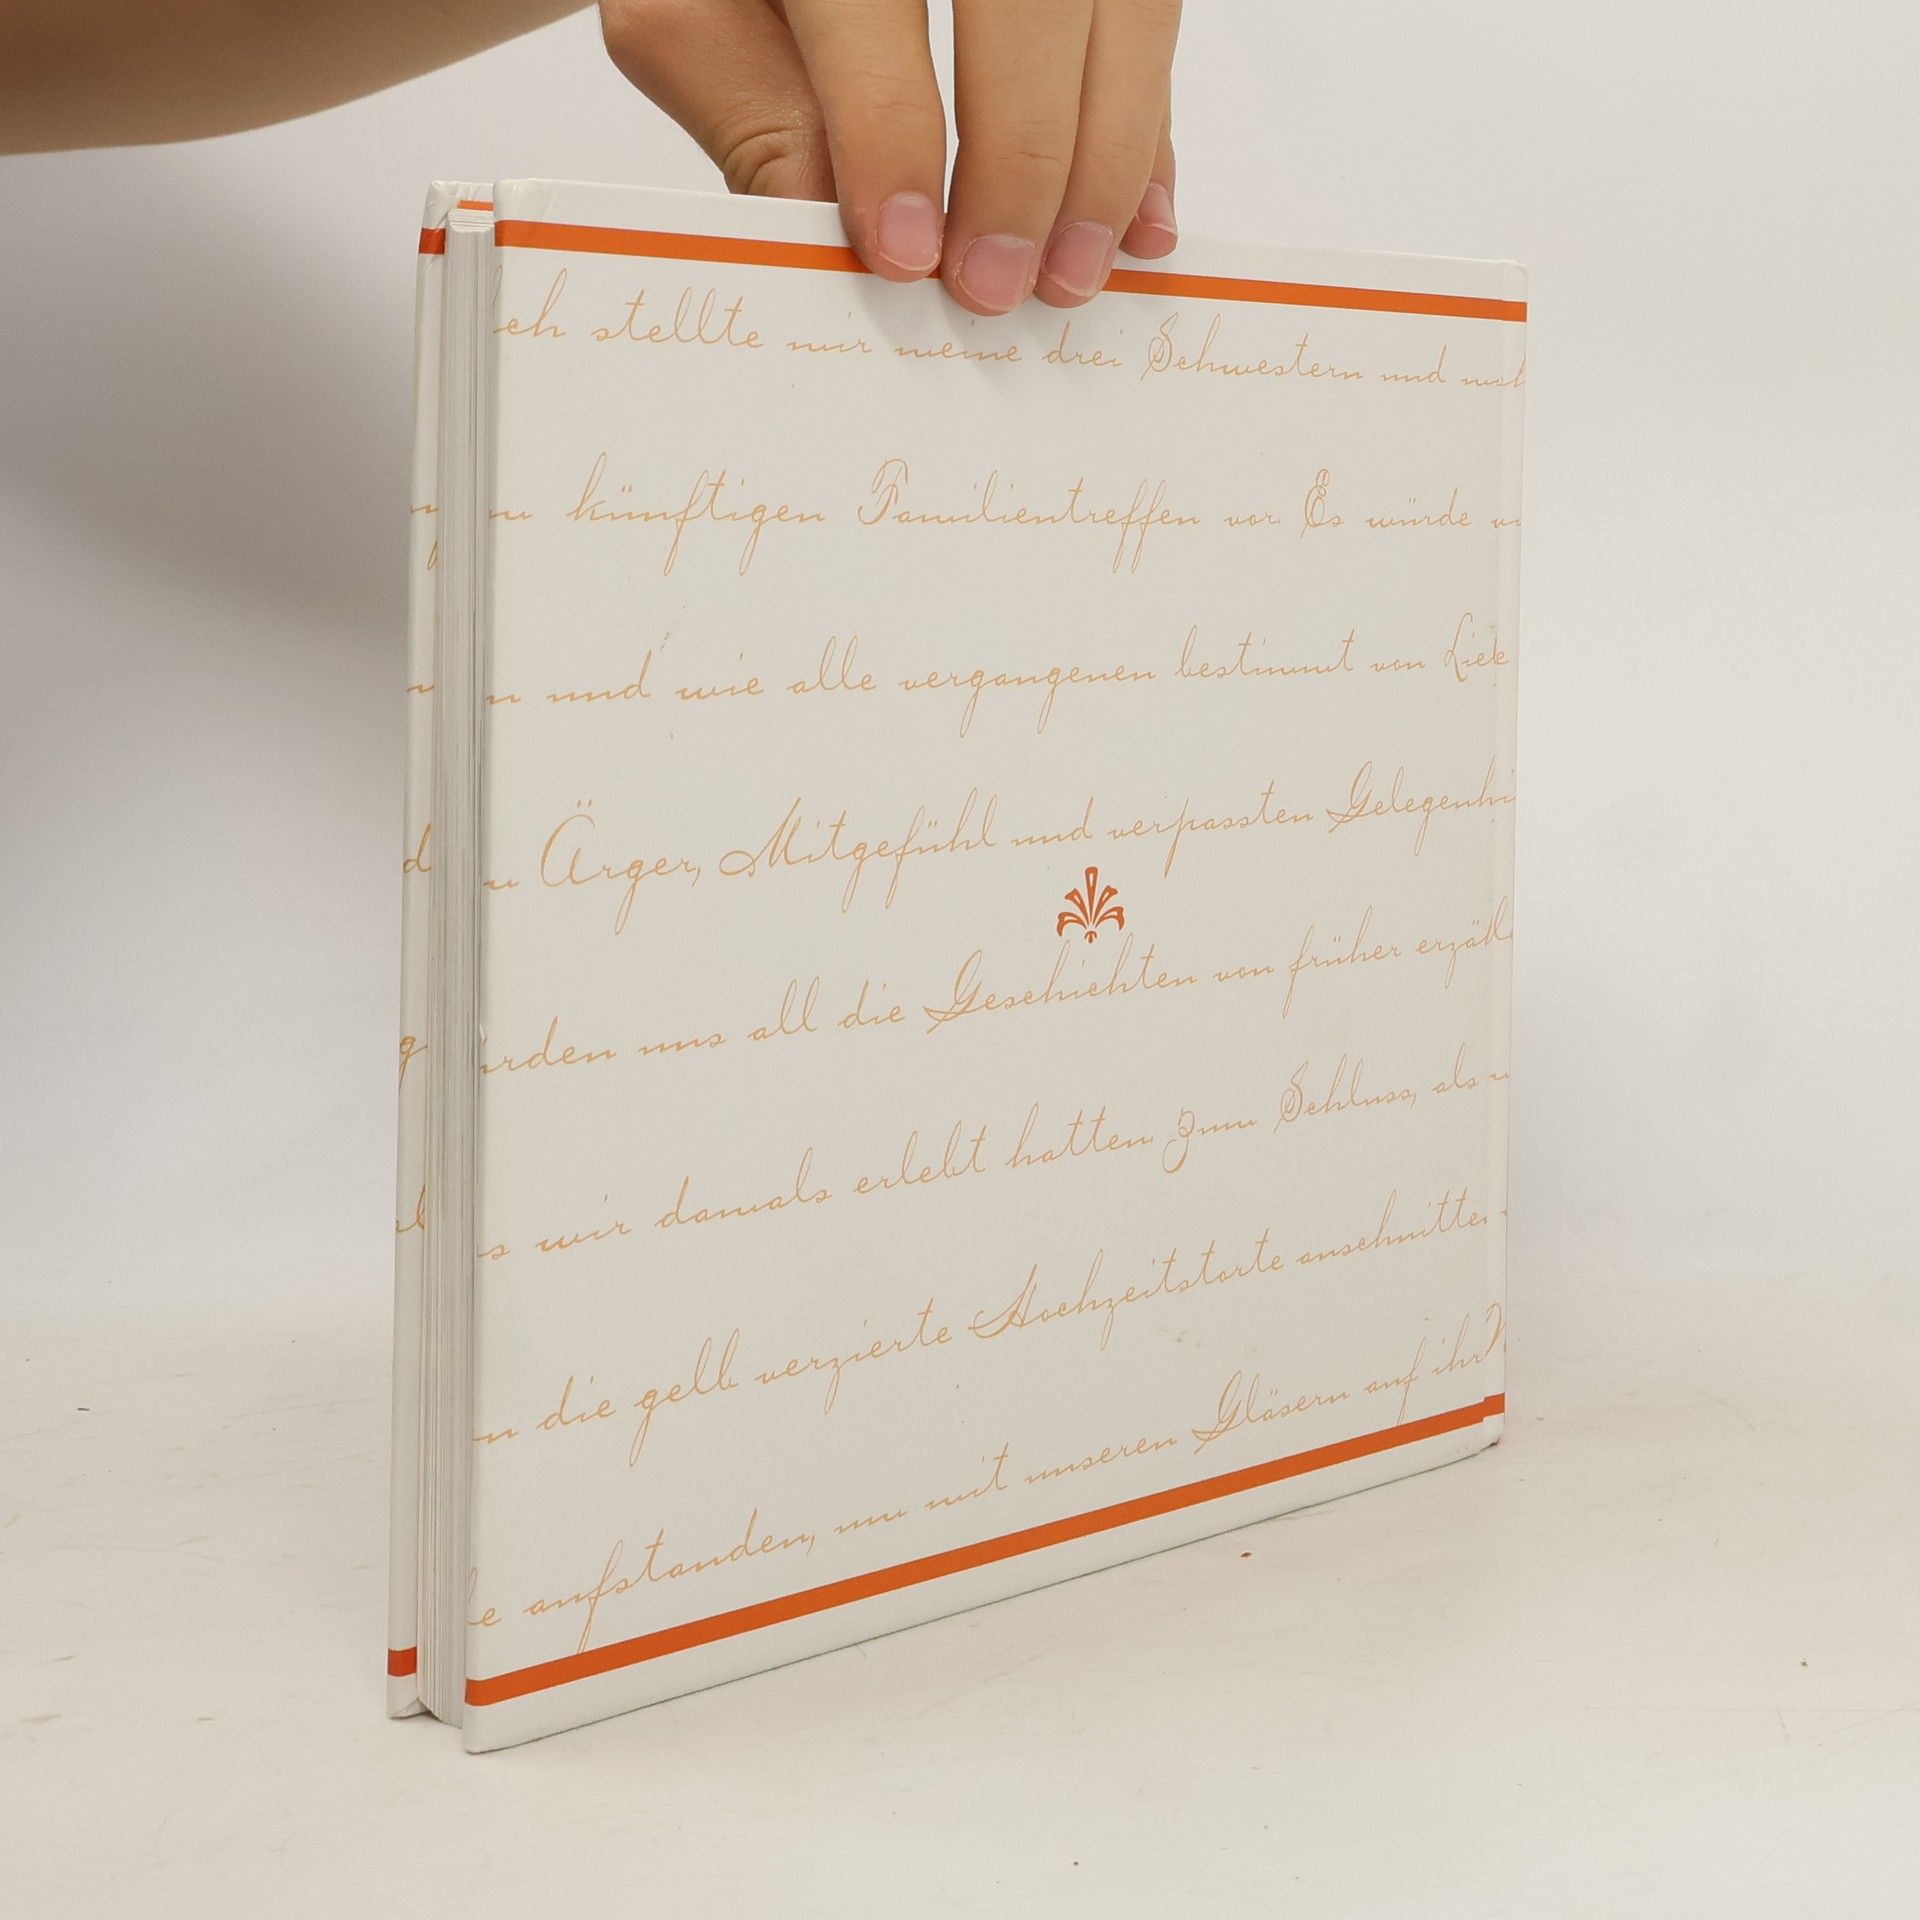 Ich stellte mir meine drei Schwestern und mich
künftigen Familientreffen vor. Es würde
und wie alle vergangenen bestimmt von Liebe
Ärger, Mitgefühl und verpassten Gelegenhei
rden uns all die Geschichten von früher erzähl
s wir damals erlebt hatten. Zum Schluss, als
n die gelb verzierte Hochzeitstorte anschnitten
le aufstanden, um mit unseren Gläsern auf ihr